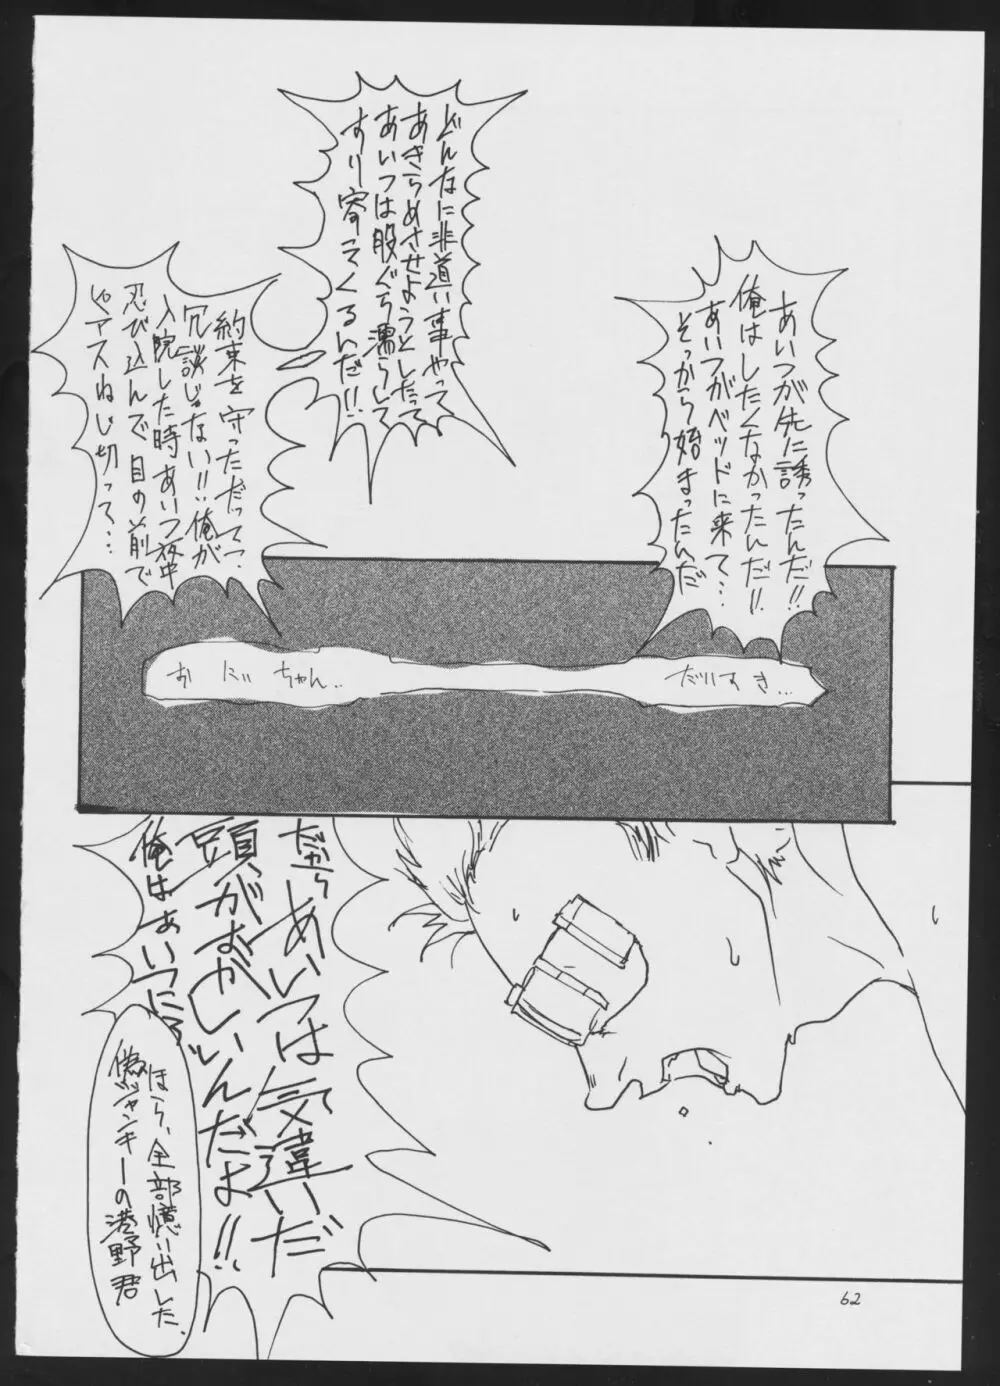 あいつが先に誘ったんだ!!
俺はしたくなかったんだ!!
あいつがベッドに来て…
そっから始まったんだ
どんなに非道い事やって
あきらめさせようとしたって
あいつは股ぐら濡らして
すり寄ってくるんだ!!
約束を守っただって?
冗談じゃない!!俺が
入院した時あいつ夜中
忍び込んで目の前で
ピアスねじ切って…
だいすき…
おにいちゃん..
だから
あいつは気違いだ
頭がおかしいんだよ!!
俺はあいつに
ほら、全部憶い出した.
偽ジャンキーの港野君
62